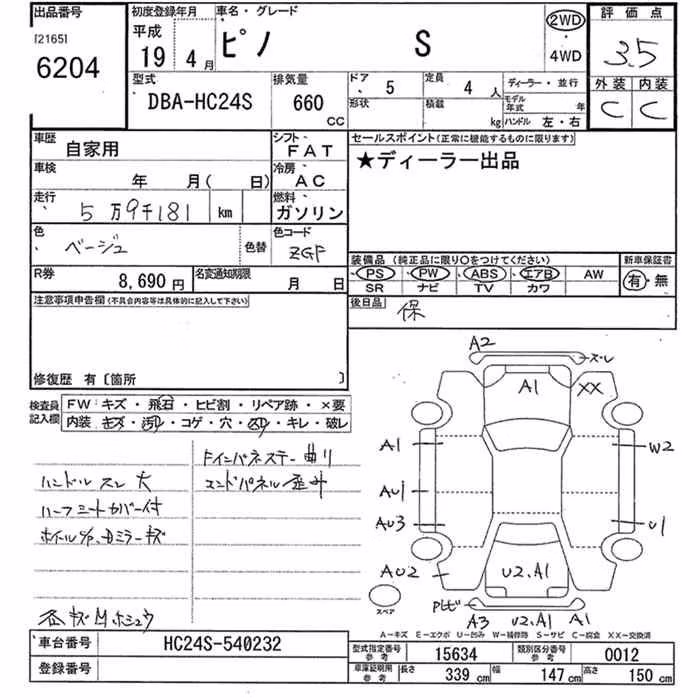 出品番号 初度登録年月 車名・グレード 評価点
[2165] 平成 2WD
6204 19年 4月 ピノ S 4WD 3.5
型式 排気量 ドア 5 定員 4人 ディーラー・並行 外装 内装
DBA-HC24S 660 CC 形状 積載 kg モデル年式 年 ハンドル 左・右 C C
車歴 自家用 シフト FAT セールスポイント(正常に機能するものに限ります)
車検 年 月( 日) 冷房 AC ★ディーラー出品
走行 5万9千181 km 燃料 ガソリン
色 ベージュ 色替 色コード ZGF
装備品 (純正品に限り○をつけてください) 新車保証書
R券 8,690円 名変通知期限 月 日 PS PW ABS エアB AW 有・無
SR ナビ TV カワ
注意事項申告欄(不具合内容等は具体的に記入して下さい) 後日品 保
修復歴 有〔箇所 〕
検査員記入欄 FW:キズ・飛石・ヒビ割・リペア跡・×要
内装:キズ・汚れ・コゲ・穴・スレ・キレ・破レ
A2 スレ
A1 XX
A1 W2
AU1
AU3 U1
AU2 U2.A1
ドインパネステー曲り
ハンドルスレ大 エンドパネル歪み
ハーフシートカバー付
ホイルC/P.ミラーキズ
各キズ ホシュウ
スペア
A3 U2.A1 A1
A-キズ E-エクボ U-凹み W-補修跡 S-サビ C-腐食 XX-交換済
車台番号 HC24S-540232 型式指定番号 参考 15634 類別区分番号 参考 0012
登録番号 車庫証明用 参考 長さ 339 cm 幅 147 cm 高さ 150 cm